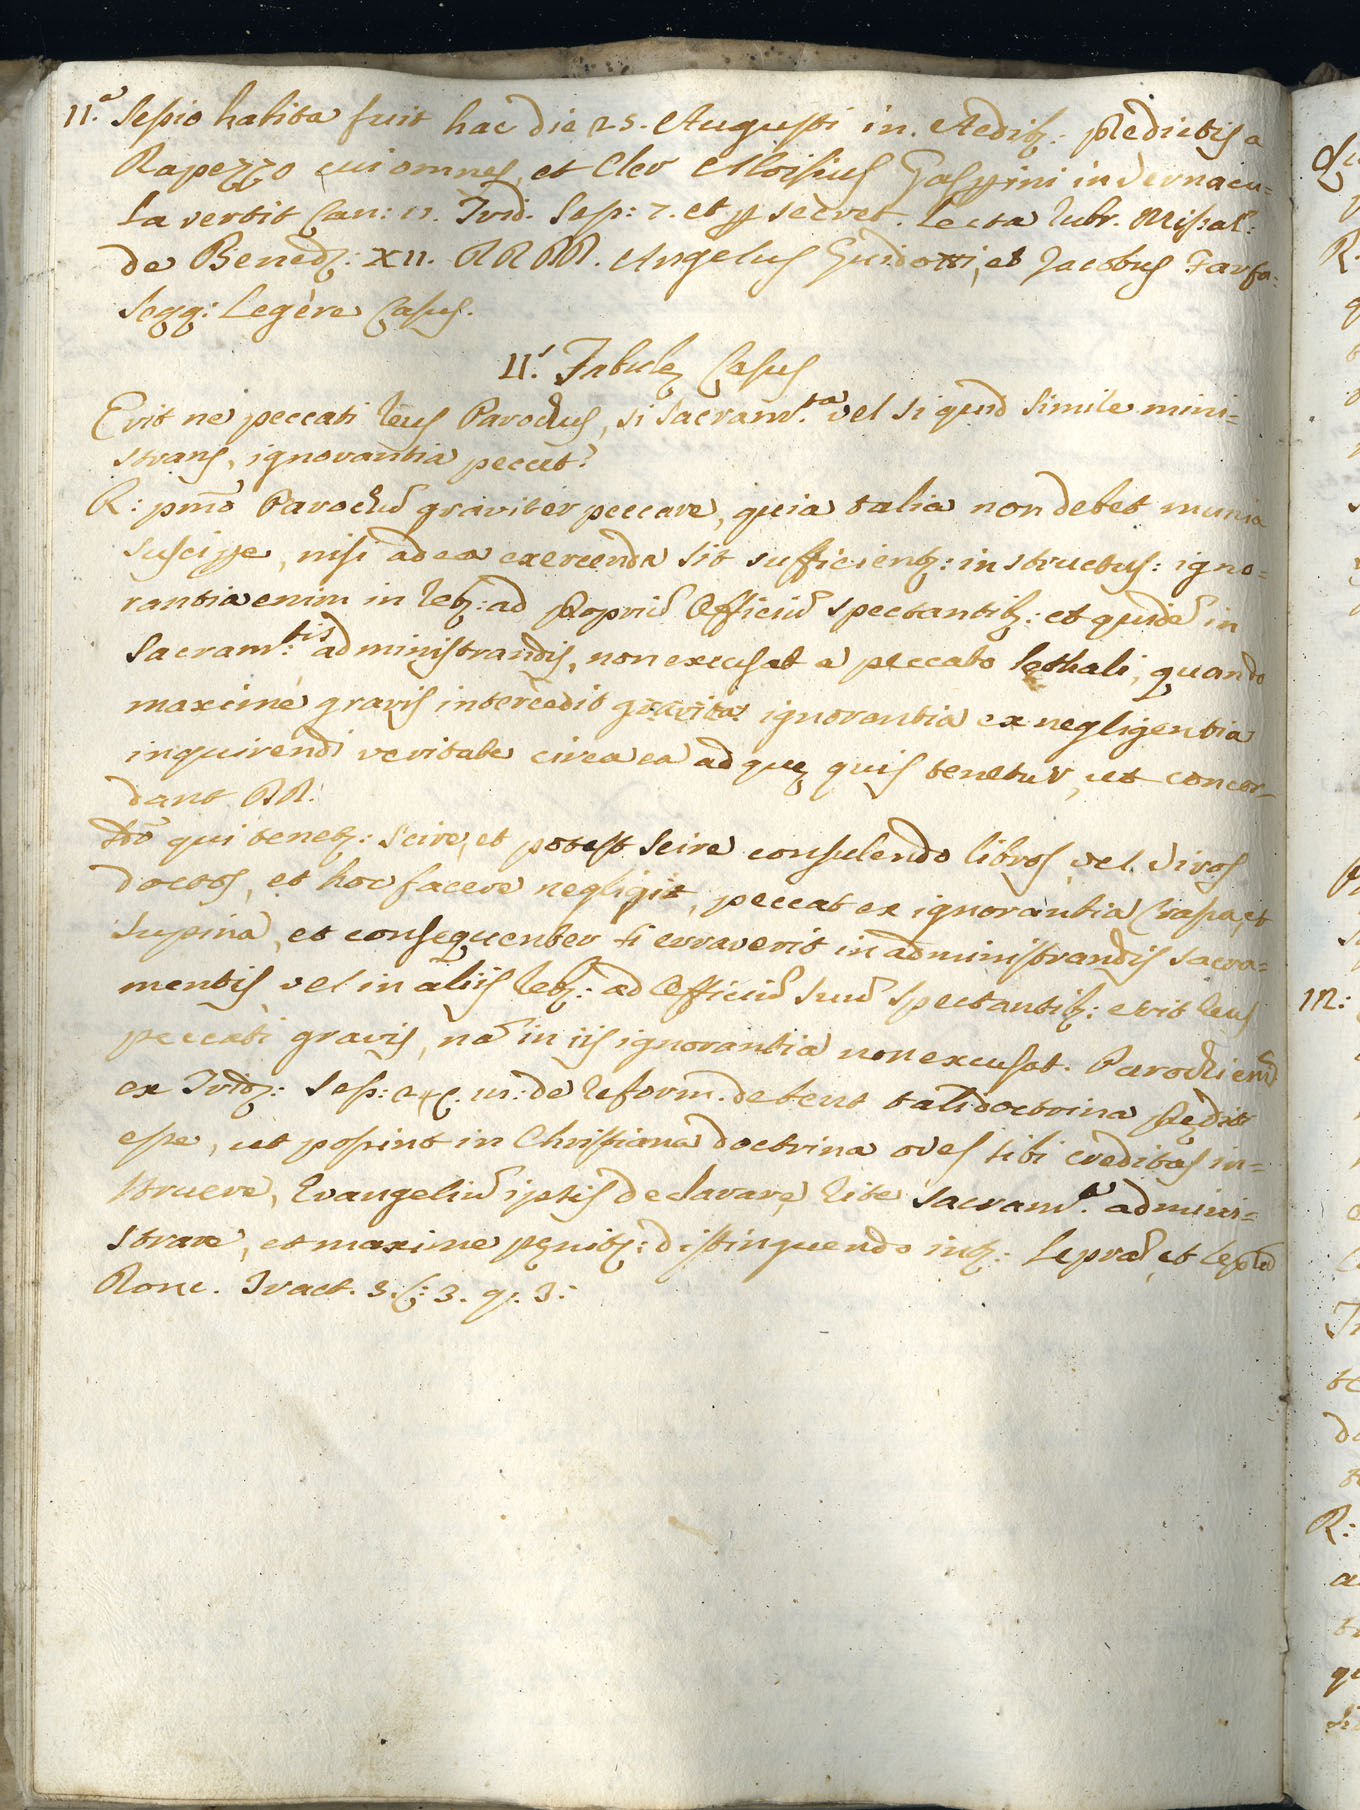 11.ª Sessio habita fuit hac die 25. Augusti in Aedib: predictis a
Rapezzo cui omnes, et Cler Aloisius Gasppini in Vernacu=
la vertit Can: 11. Trid. Sess: 7. et p secret. Lecta Rubr. Missal:
de Bened: XII. RR. DD. Angelus Guidotti, et Jacobus Farfa=
segg: Legère Casus.
11.s Tabule Casus
Erit ne peccati reus Parochus, si sacram.ta vel si quid simile mini=
strans, ignorantia peccet?
R: pmo Parochũ graviter peccare, quia talia non debet munia
suscipe, nisi ad ea exercenda sit sufficient: instructus: igno=
rantia enim in reb: ad propriũ Officiũ spectantib: et quidẽ in
Sacram:tis administrandis, non excusat a peccato lethali, quando
maximè gravis intercedit ignorantia ex negligentia
inquirendi veritatẽ circa ea ad quę quis tenetur, ut concor=
dant DD.
2do qui tenet: scire, et potest scire consulendo libros, vel Viros
doctos, et hoc facere negligit, peccat ex ignorantia Crassa, et
supina, et consequenter si erraverit in administrandis sacra=
mentis vel in aliis reb: ad Officiũ suũ spectantib: erit reus
peccati gravis, nã in iis ignorantia non excusat. Parochi enĩ
ex Trid: Sess: de reform. debent tali doctrina prędit
esse, ut possint in Christiana doctrina oves sibi creditas in=
struere, Evangeliũ ipsis declarare, rite sacram.ta admini=
strare, et maxime pęnit: distinguendo int: Leprã, et
Ronc. Tract. 3. C: 3. q: 3: